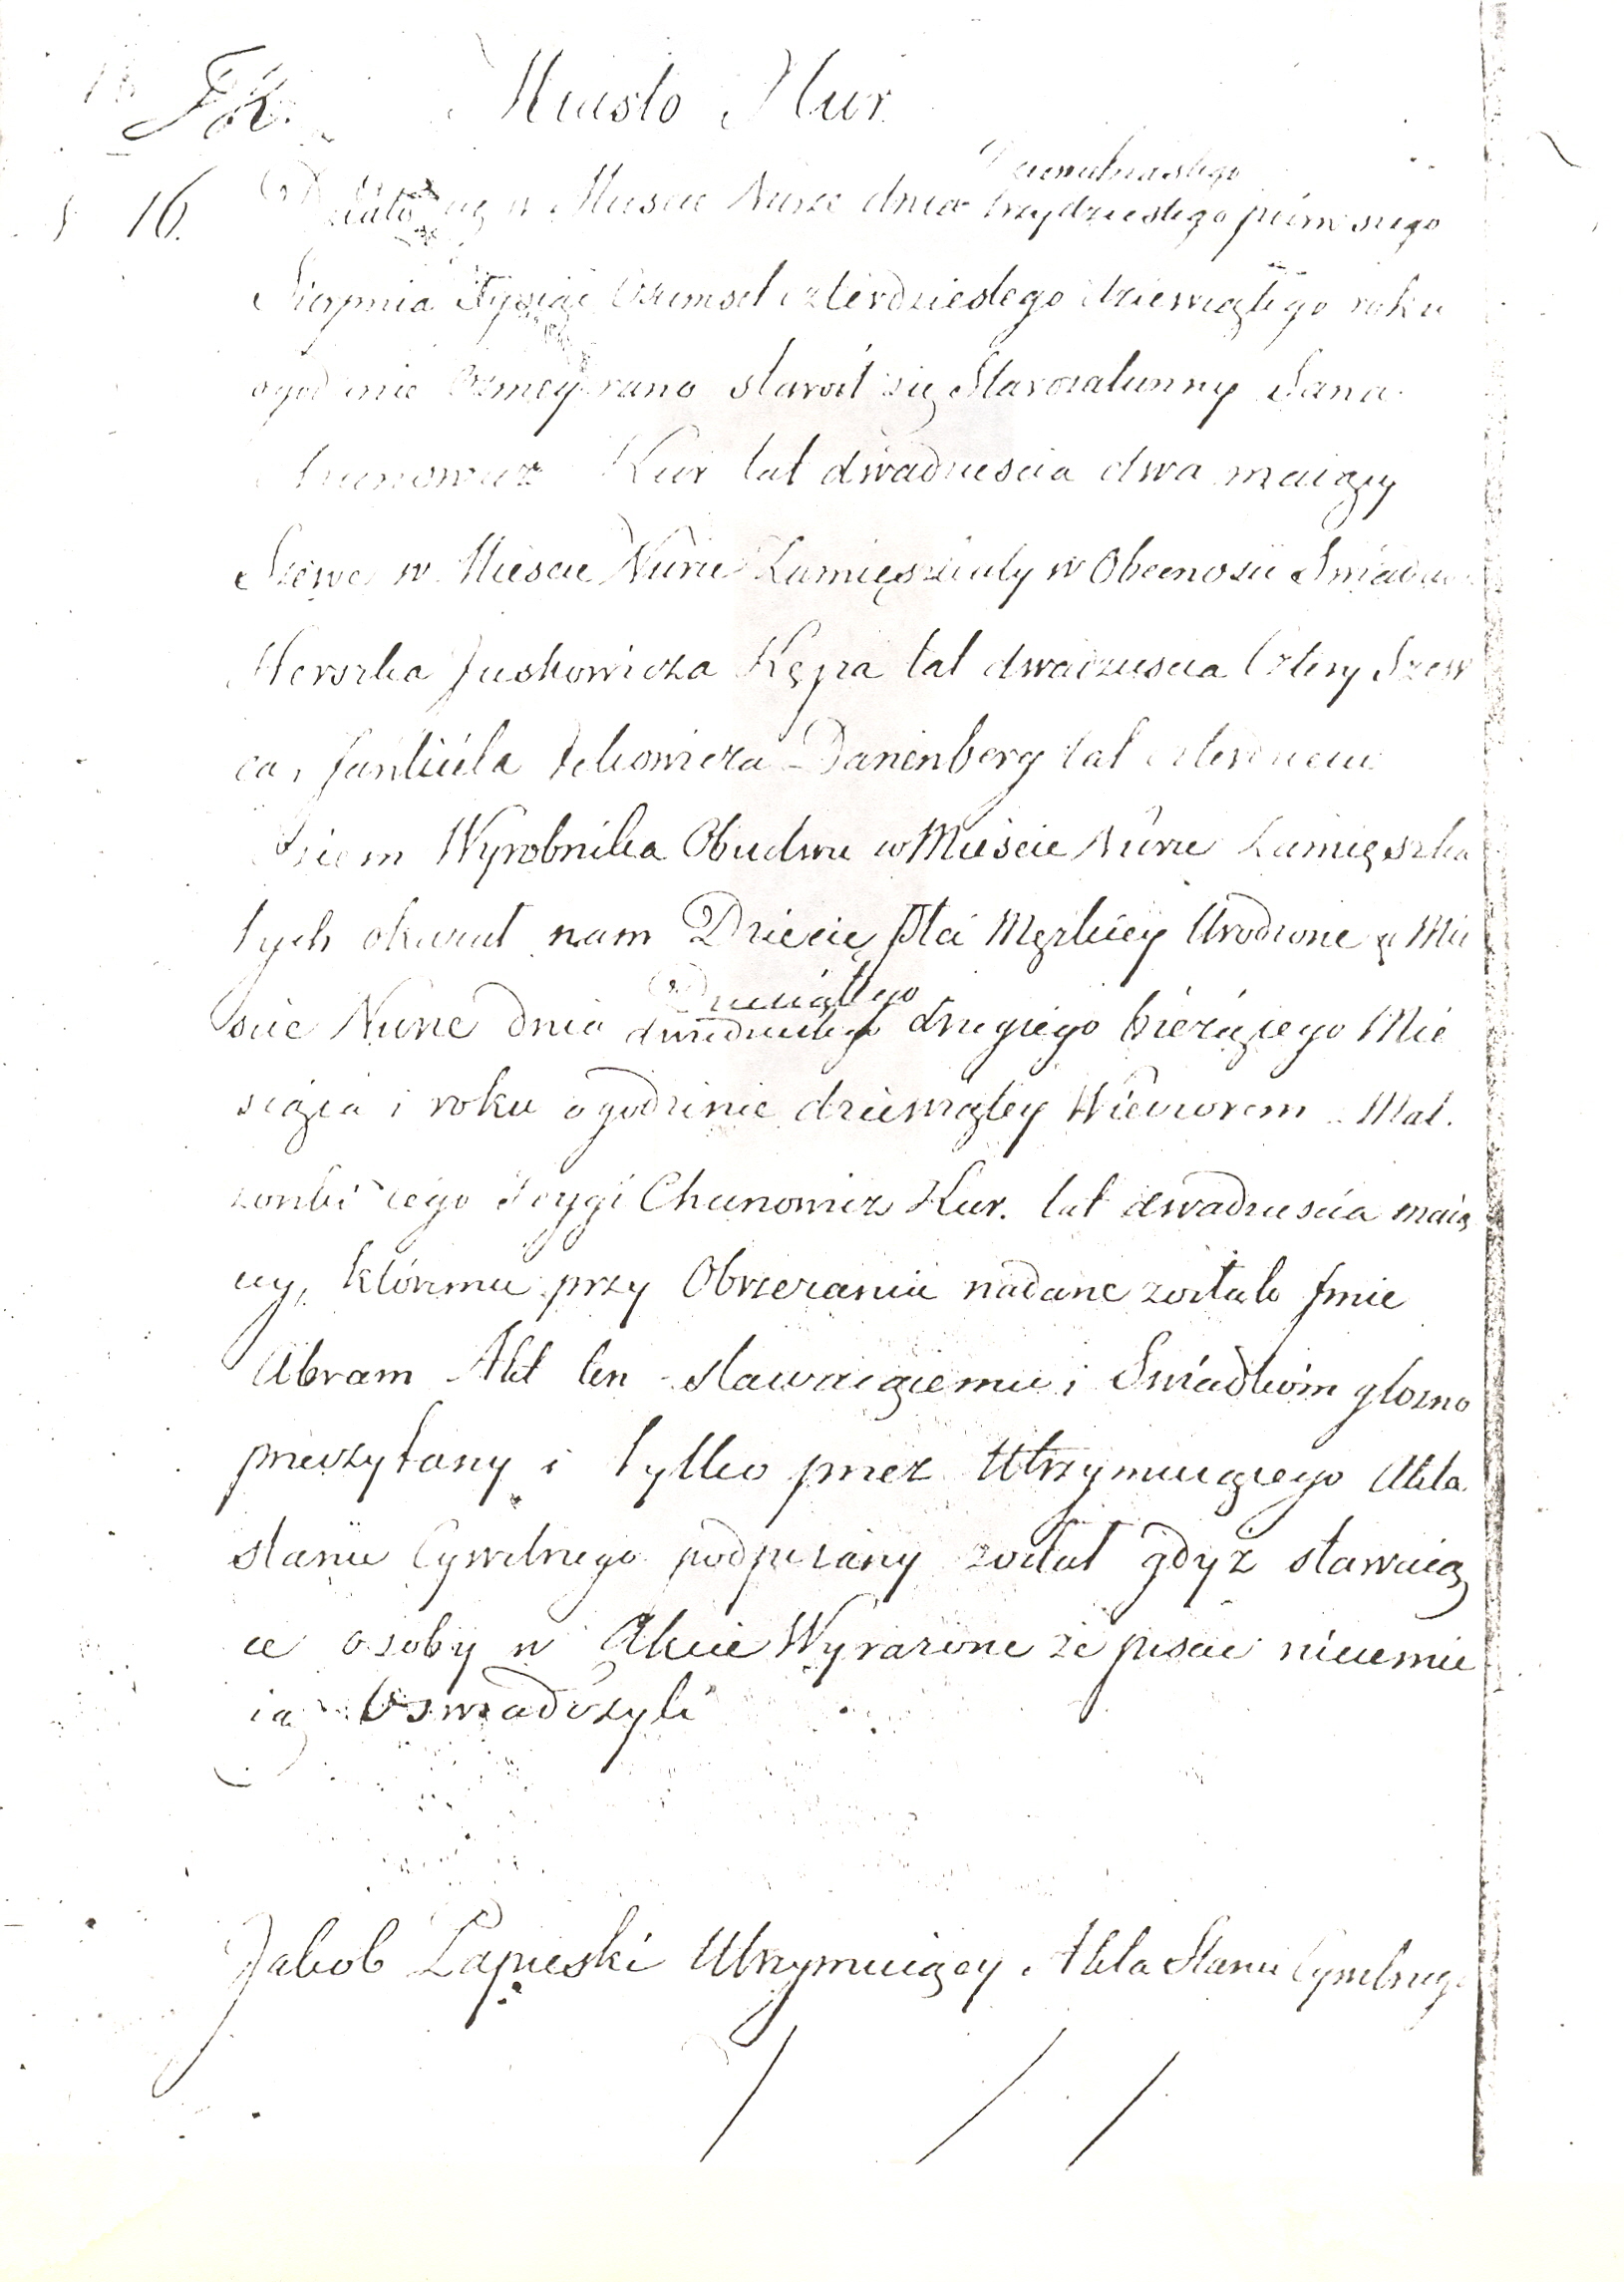 Miasto Nur
16.
Działo się w Miescie Nurze dnia trzydziestego pierwszego
Sierpnia Tysiąc Osmset czterdziestego dziewiątego roku
ogodzinie Osmey rano stawił się Starozakonny
Kur lat dwadziescia dwa maiący
Szewc w Miescie Nurze Zamięszkały w Obecnosci Swiadków
Herszka Juskowicza Kępa lat dwadziescia Cztery Szew
ca, Danenberg lat
Wyrobnika Obudwu w Miescie Nurze Zamięszka
łych okazał nam Dziecię Płci Męzkiey Urodzone w Mie
Dziesiątego
scie Nurze dnia drugiego bieżącego Mie
siąca i roku ogodzinie dziewiątey Wieczorem Mał.
żonki iego Chunowicz Kur. lat dwadziescia maią
cy, któremu przy Obrzezaniu nadane zostało Jmie
Abram Akt ten stawaiącemu i Swiadkóm głosno
przeczytany i tylko przez Utrzymuiącego Akta
stanu Cywilnego podpisany został gdyż stawaią
ce osoby w Akcie Wyrażone że pisac nieumie
ią Oswiadczyli
Jakob Łapieski Utrzymuiący Akta Stanu Cywilneg